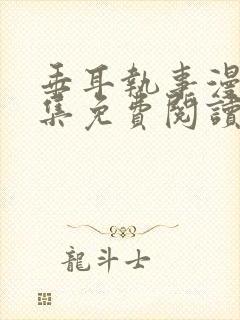 垂耳執事漫
集免費閱讀
龍斗士